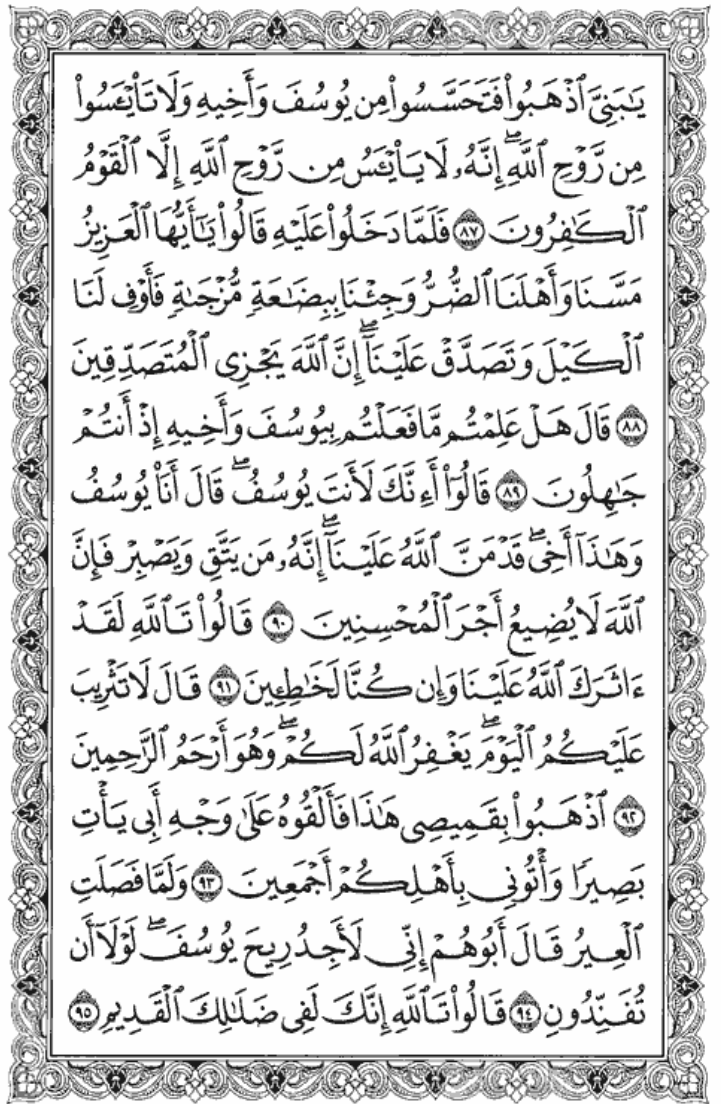 يَٰبَنِىَّ ٱذْهَبُوا۟ فَتَحَسَّسُوا۟ مِن يُوسُفَ وَأَخِيهِ وَلَا تَا۟يْـَٔسُوا۟
مِن رَّوْحِ ٱللَّهِ ۖ إِنَّهُۥ لَا يَا۟يْـَٔسُ مِن رَّوْحِ ٱللَّهِ إِلَّا ٱلْقَوْمُ
ٱلْكَٰفِرُونَ ٨٧ فَلَمَّا دَخَلُوا۟ عَلَيْهِ قَالُوا۟ يَٰٓأَيُّهَا ٱلْعَزِيزُ
مَسَّنَا وَأَهْلَنَا ٱلضُّرُّ وَجِئْنَا بِبِضَٰعَةٍ مُّزْجَىٰةٍ فَأَوْفِ لَنَا
ٱلْكَيْلَ وَتَصَدَّقْ عَلَيْنَآ ۖ إِنَّ ٱللَّهَ يَجْزِى ٱلْمُتَصَدِّقِينَ
٨٨ قَالَ هَلْ عَلِمْتُم مَّا فَعَلْتُم بِيُوسُفَ وَأَخِيهِ إِذْ أَنتُمْ
جَٰهِلُونَ ٨٩ قَالُوٓا۟ أَءِنَّكَ لَأَنتَ يُوسُفُ ۖ قَالَ أَنَا۠ يُوسُفُ
وَهَٰذَآ أَخِى ۖ قَدْ مَنَّ ٱللَّهُ عَلَيْنَآ ۖ إِنَّهُۥ مَن يَتَّقِ وَيَصْبِرْ فَإِنَّ
ٱللَّهَ لَا يُضِيعُ أَجْرَ ٱلْمُحْسِنِينَ ٩٠ قَالُوا۟ تَٱللَّهِ لَقَدْ
ءَاثَرَكَ ٱللَّهُ عَلَيْنَا وَإِن كُنَّا لَخَٰطِـِٔينَ ٩١ قَالَ لَا تَثْرِيبَ
عَلَيْكُمُ ٱلْيَوْمَ ۖ يَغْفِرُ ٱللَّهُ لَكُمْ ۖ وَهُوَ أَرْحَمُ ٱلرَّٰحِمِينَ
٩٢ ٱذْهَبُوا۟ بِقَمِيصِى هَٰذَا فَأَلْقُوهُ عَلَىٰ وَجْهِ أَبِى يَأْتِ
بَصِيرًا وَأْتُونِى بِأَهْلِكُمْ أَجْمَعِينَ ٩٣ وَلَمَّا فَصَلَتِ
ٱلْعِيرُ قَالَ أَبُوهُمْ إِنِّى لَأَجِدُ رِيحَ يُوسُفَ ۖ لَوْلَآ أَن
تُفَنِّدُونِ ٩٤ قَالُوا۟ تَٱللَّهِ إِنَّكَ لَفِى ضَلَٰلِكَ ٱلْقَدِيمِ ٩٥